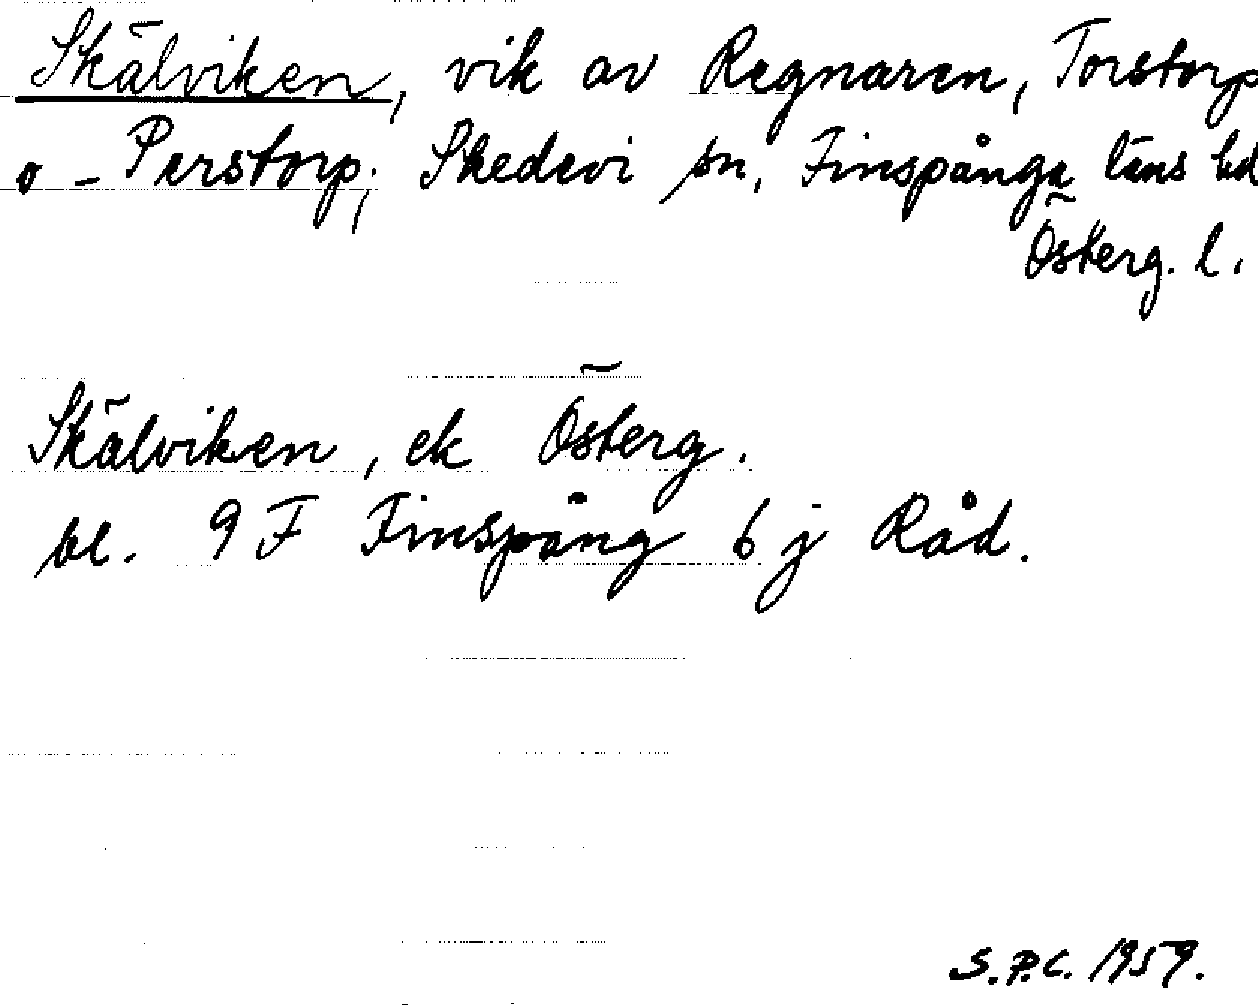 Skälviken, vik av Regnaren, Torstorp
o - Perstorp; Skedevi sn, Finspånga läns hd
Österg. l.
Skälviken, ek Österg.
bl. 9 F Finspång 6 j Råd.
S.P.C. 1959.